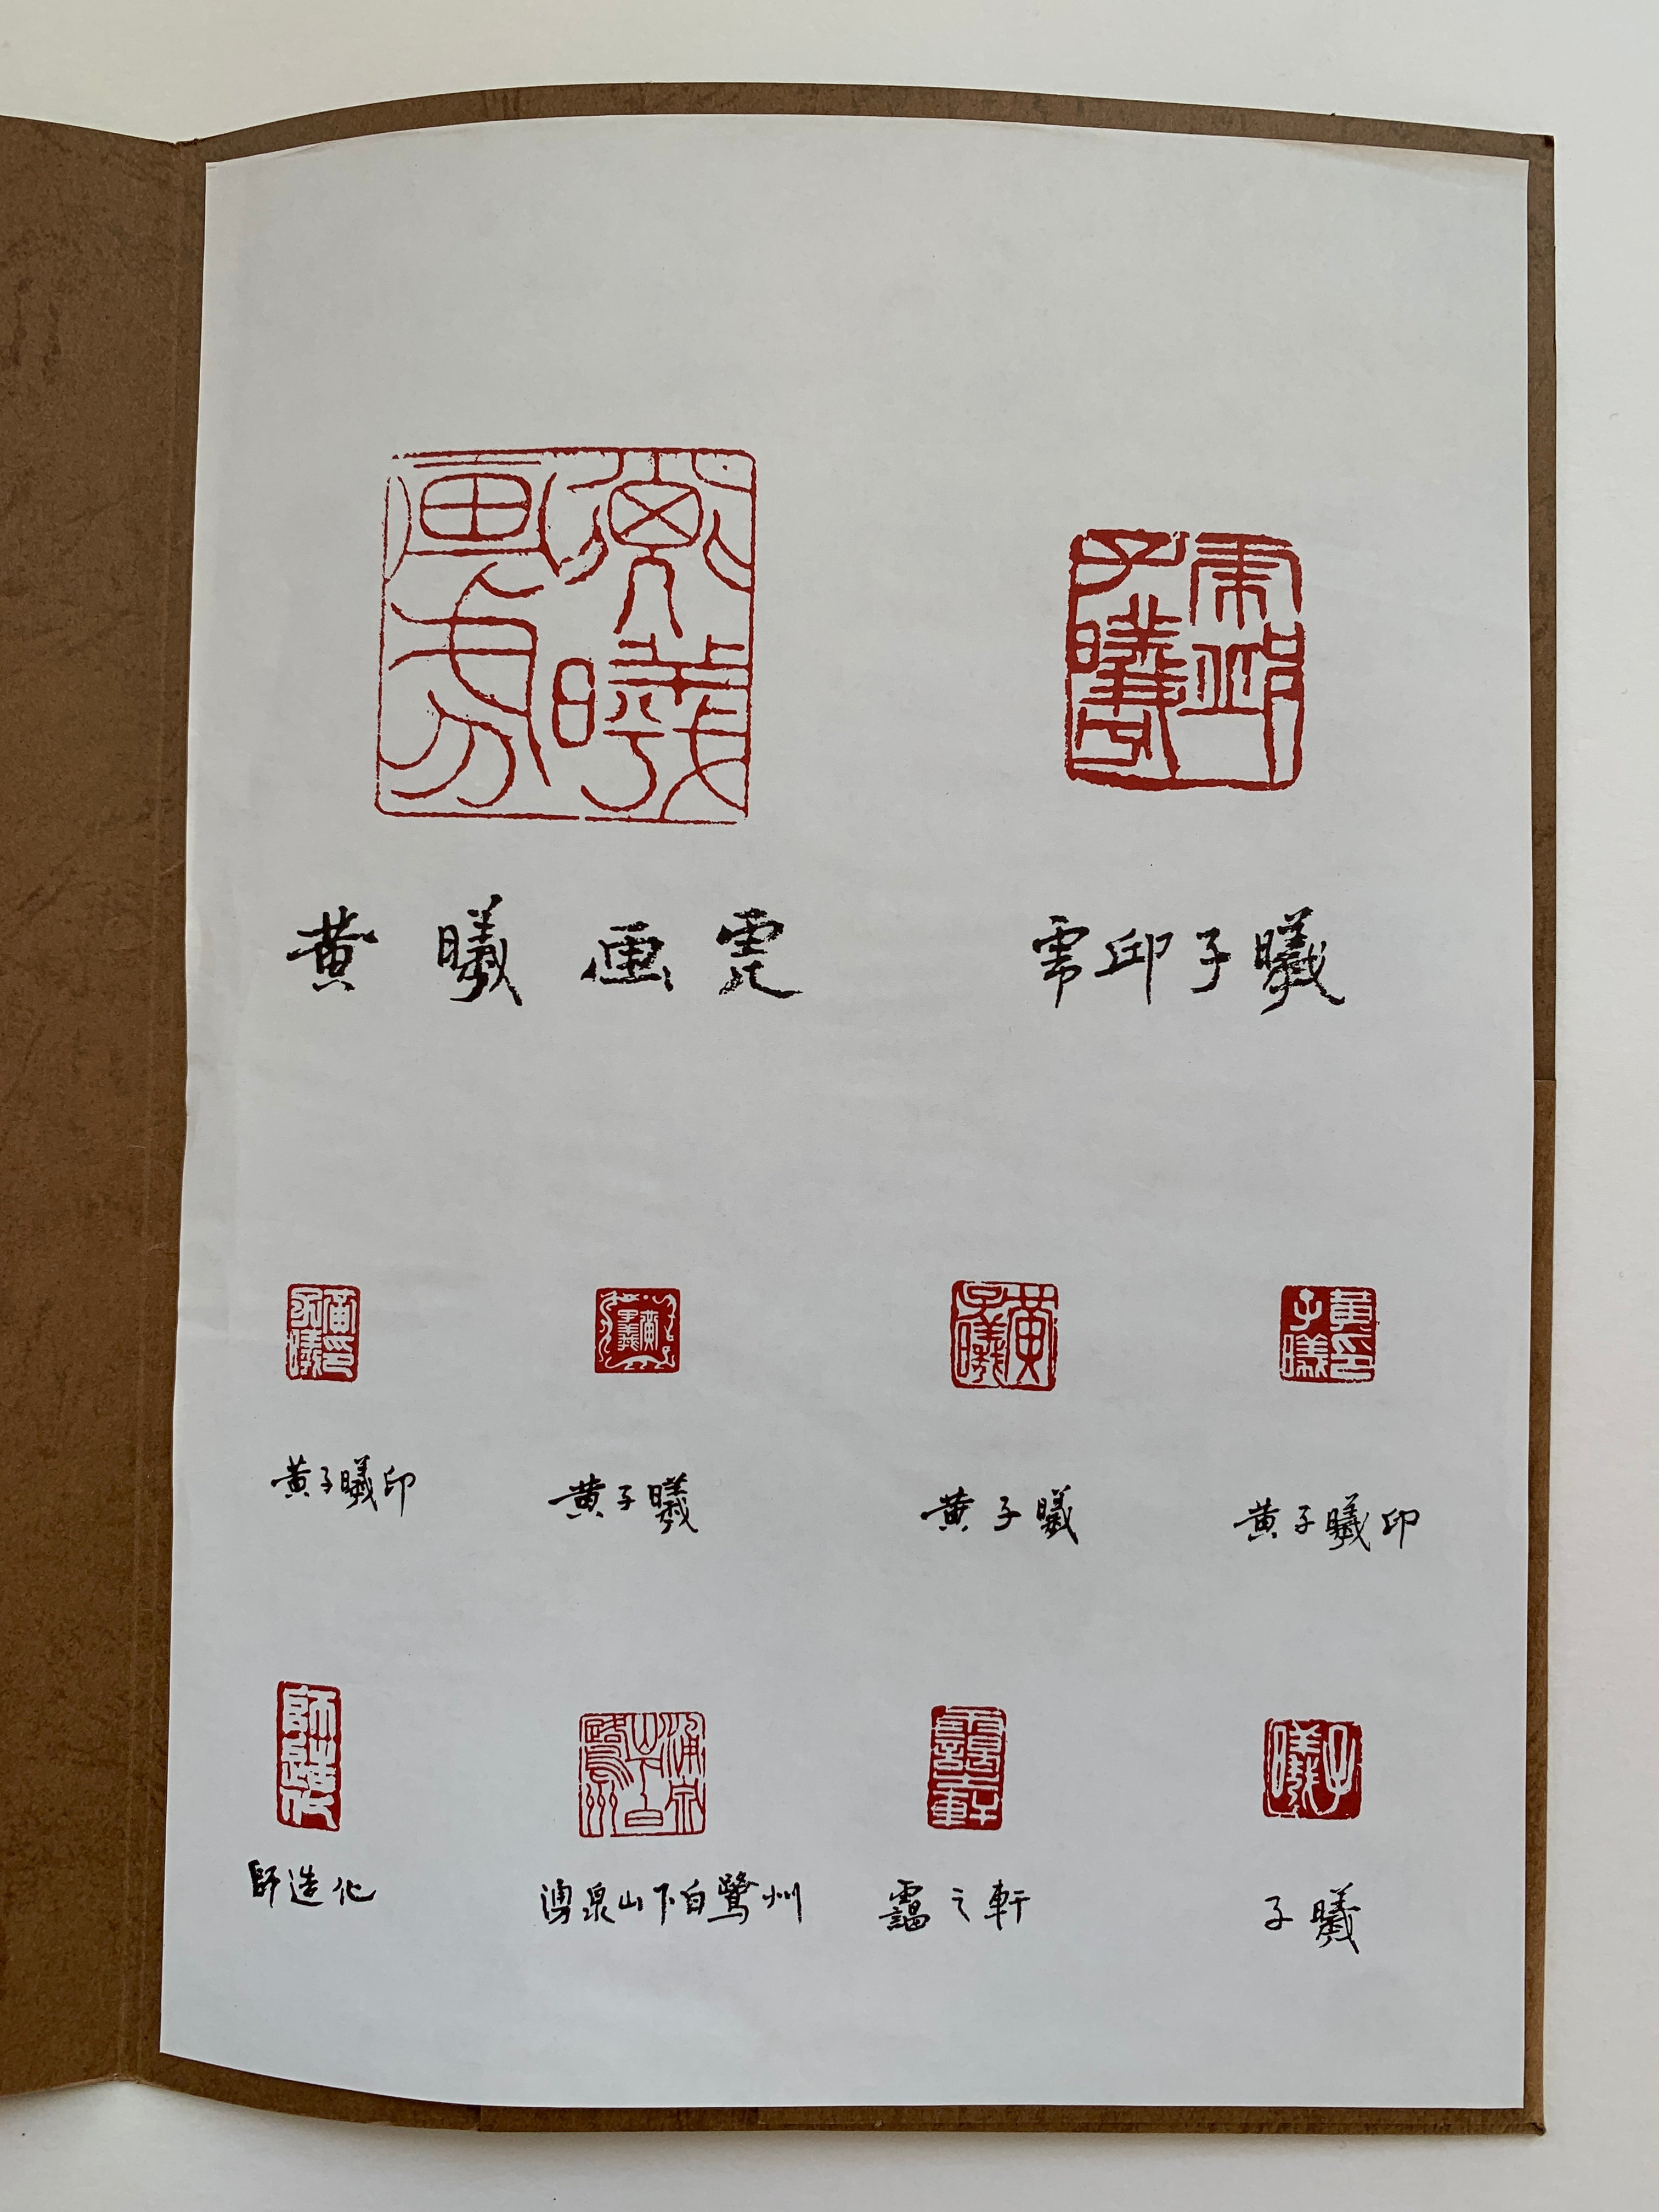 黄曦画霓
雩邱子曦
黄子曦印
黄子曦
黄子曦
黄子曦印
師造化
湧泉山下白鷺州
靄之軒
子曦